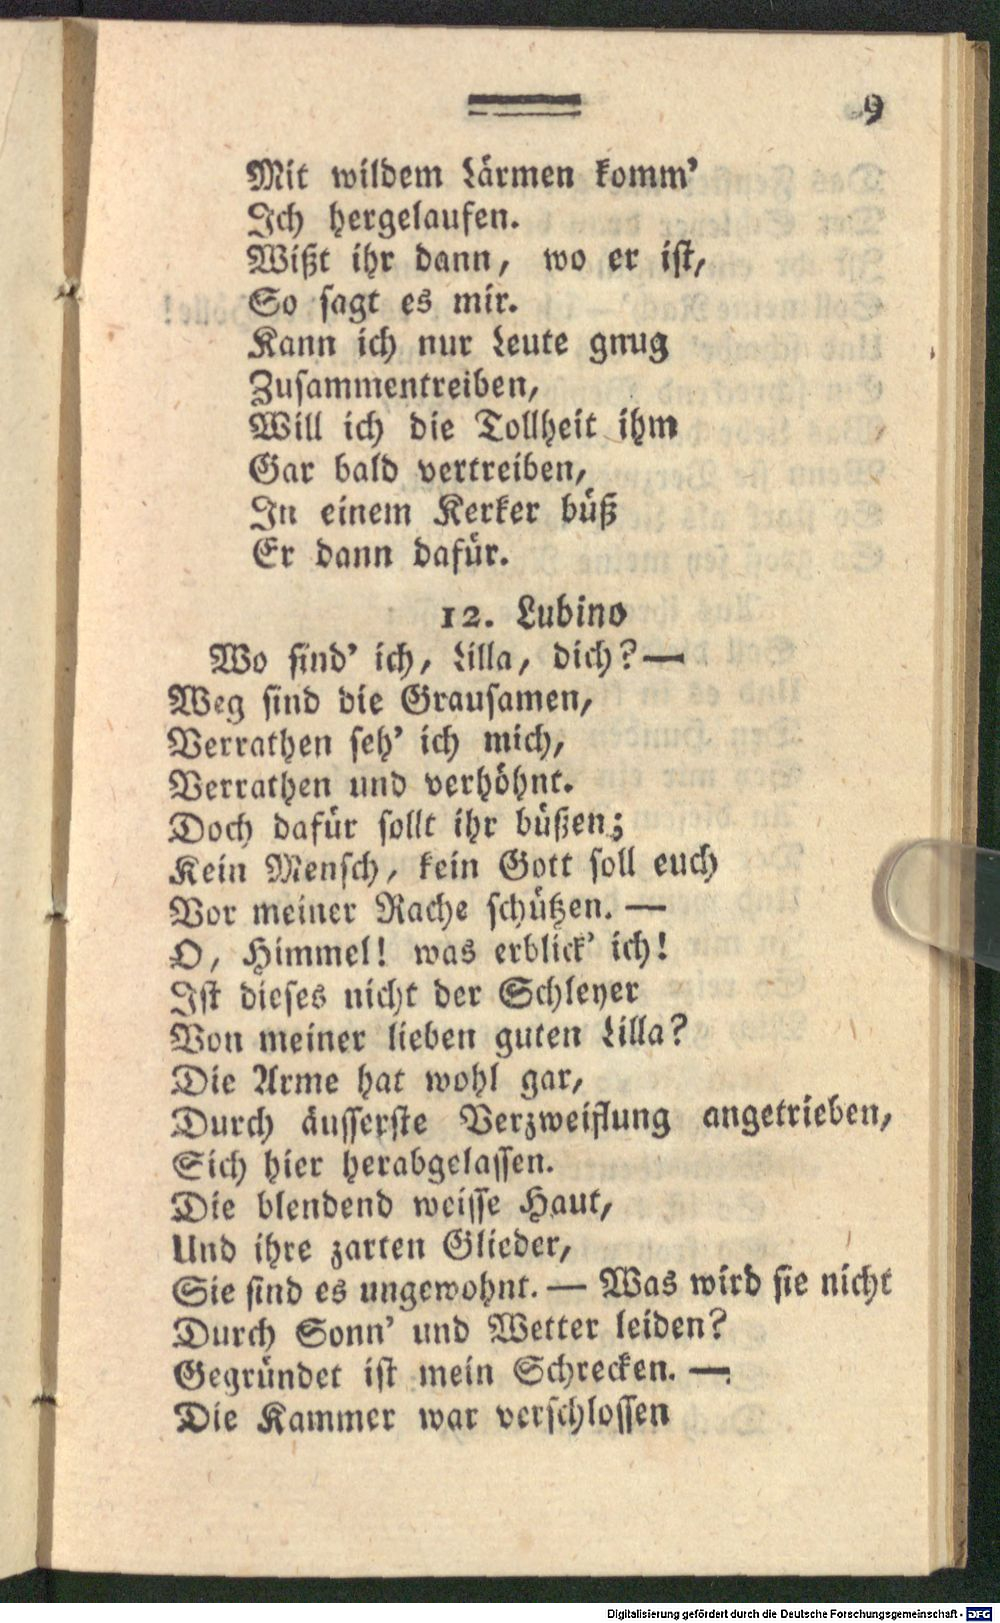 9
Mit wildem Lärmen komm'
Ich hergelaufen.
Wißt ihr dann, wo er ist,
So sagt es mir.
Kann ich nur Leute gnug
Zusammentreiben,
Will ich die Tollheit ihm
Gar bald vertreiben,
In einem Kerker büß
Er dann dafür.
12. Lubino
Wo find' ich, Lilla, dich? —
Weg sind die Grausamen,
Verrathen seh' ich mich,
Verrathen und verhöhnt.
Doch dafür sollt ihr büßen;
Kein Mensch, kein Gott soll euch
Vor meiner Rache schützen. —
O, Himmel! was erblick' ich!
Ist dieses nicht der Schleyer
Von meiner lieben guten Lilla?
Die Arme hat wohl gar,
Durch äusserste Verzweiflung angetrieben,
Sich hier herabgelassen.
Die blendend weisse Haut,
Und ihre zarten Glieder,
Sie sind es ungewohnt. — Was wird sie nicht
Durch Sonn' und Wetter leiden?
Gegründet ist mein Schrecken. —
Die Kammer war verschlossen
Digitalisierung gefördert durch die Deutsche Forschungsgemeinschaft - DFG